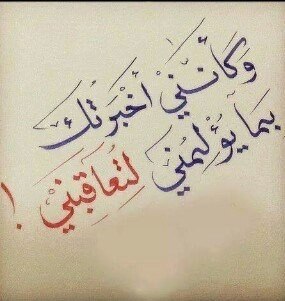 وَكَأنَّنِي أخبَرتُك
بِمَا يُؤلِمُنِي لتُعَاقِبَنِي !